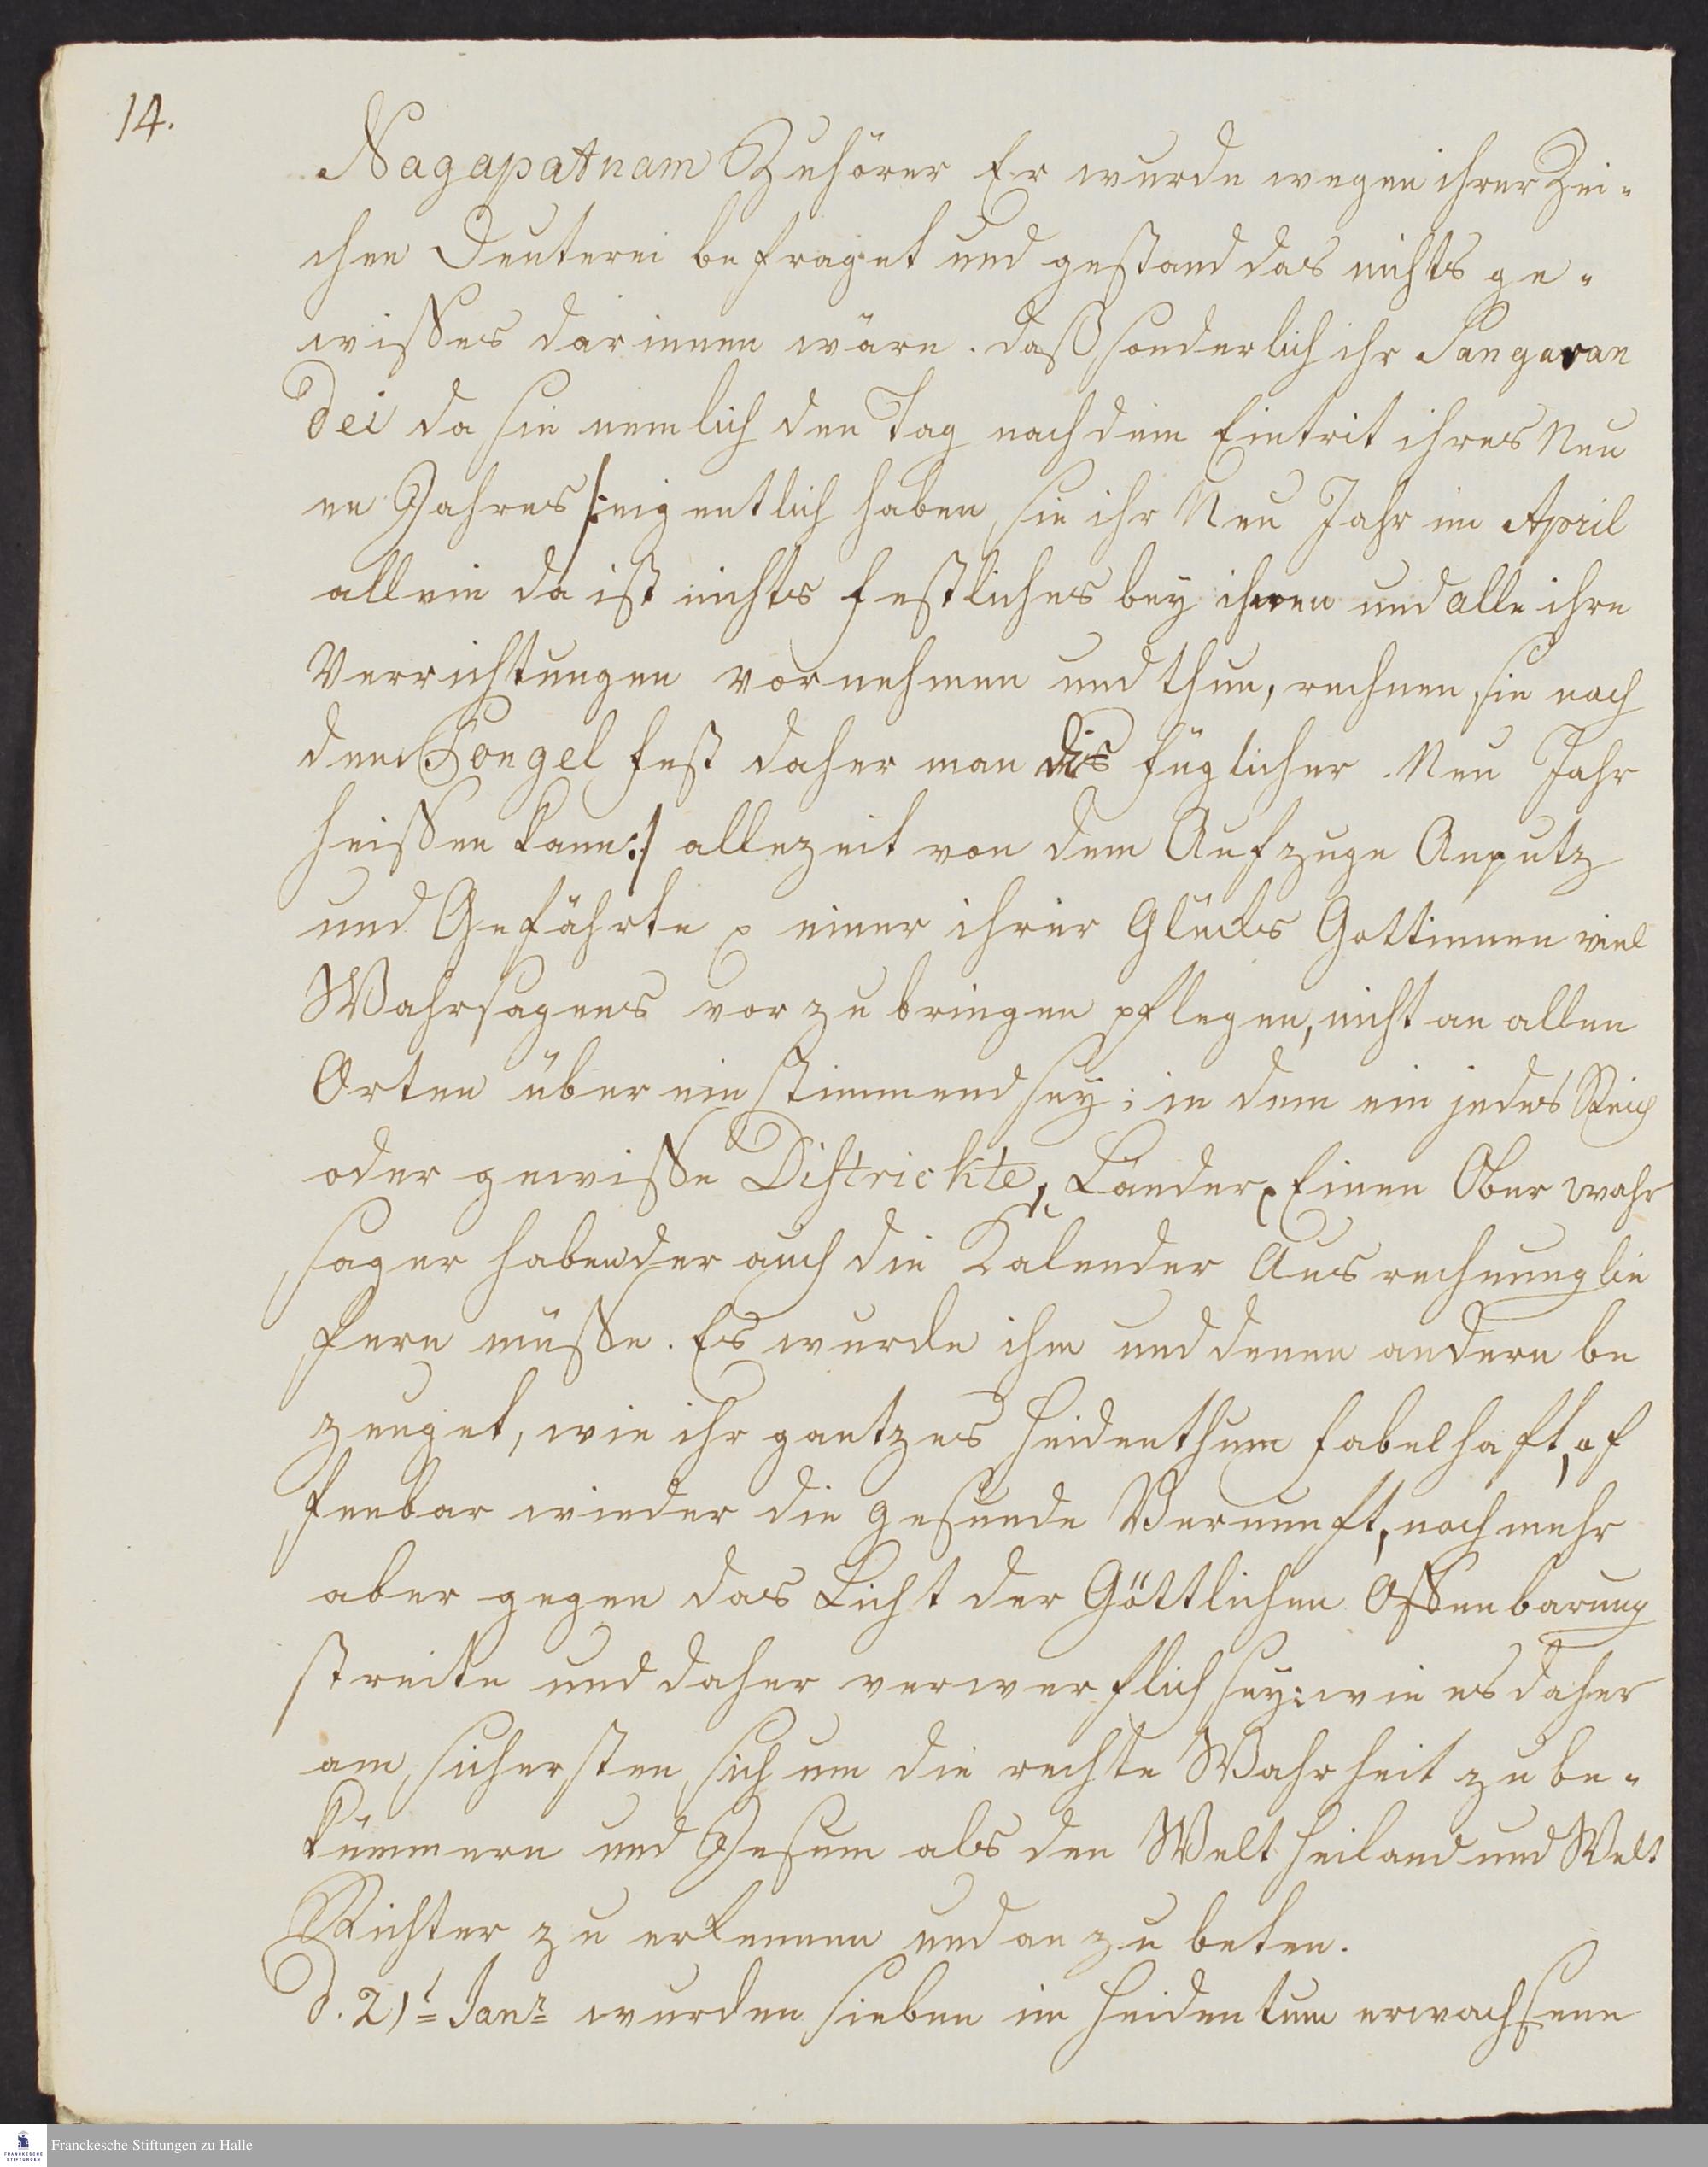 14.
Nagapatnam Zuhörer Er wurde wegen ihrer Zei-
chen Deuterei befraget und gestand das nichts ge-
wißes darinnen wäre. daß sonderlich ihr Sangaran
dei da sie nemlich den Tag nach dem Eintrit ihres Neu
en Jahres /: eigentlich haben sie ihr Neu Jahr im April
allein da ist nichts festliches bey ihnen und alle ihre
Verrichtungen vornehmen und thun, rechnen sie nach
dem Pongel fest daher man dis füglicher Neu Jahr
heißen kann :/ allezeit von dem Aufzuge Anputz
und Gefährte p einer ihrer Glücks Gottinnen viel
Wahrsagens vorzubringen pflegen, nicht an allen
Orten über ein stimmend sey; in dem ein jedes Reich
oder gewiße Districkte, Länder p Einen Ober wahr
sager haben der auch die Kalender Ausrechnung lie
fern müße. Es wurde ihm und denen andern be
zeuget, wie ihr gantzes Heidenthum fabelhaft, of
fenbar wieder die gesunde Vernunft, noch mehr
aber gegen das Licht der Göttlichen Offenbarung
streite und daher verwerflich sey: wie es daher
am sichersten sich um die rechte Wahrheit zu be-
kümmern und Jesum als den Welt Heiland und Welt
Richter zu erkennen und an zu beten.
d. 21t Janr wurden sieben im Heidentum erwachsene
FRANCKESCHE STIFTUNGEN
Franckesche Stiftungen zu Halle